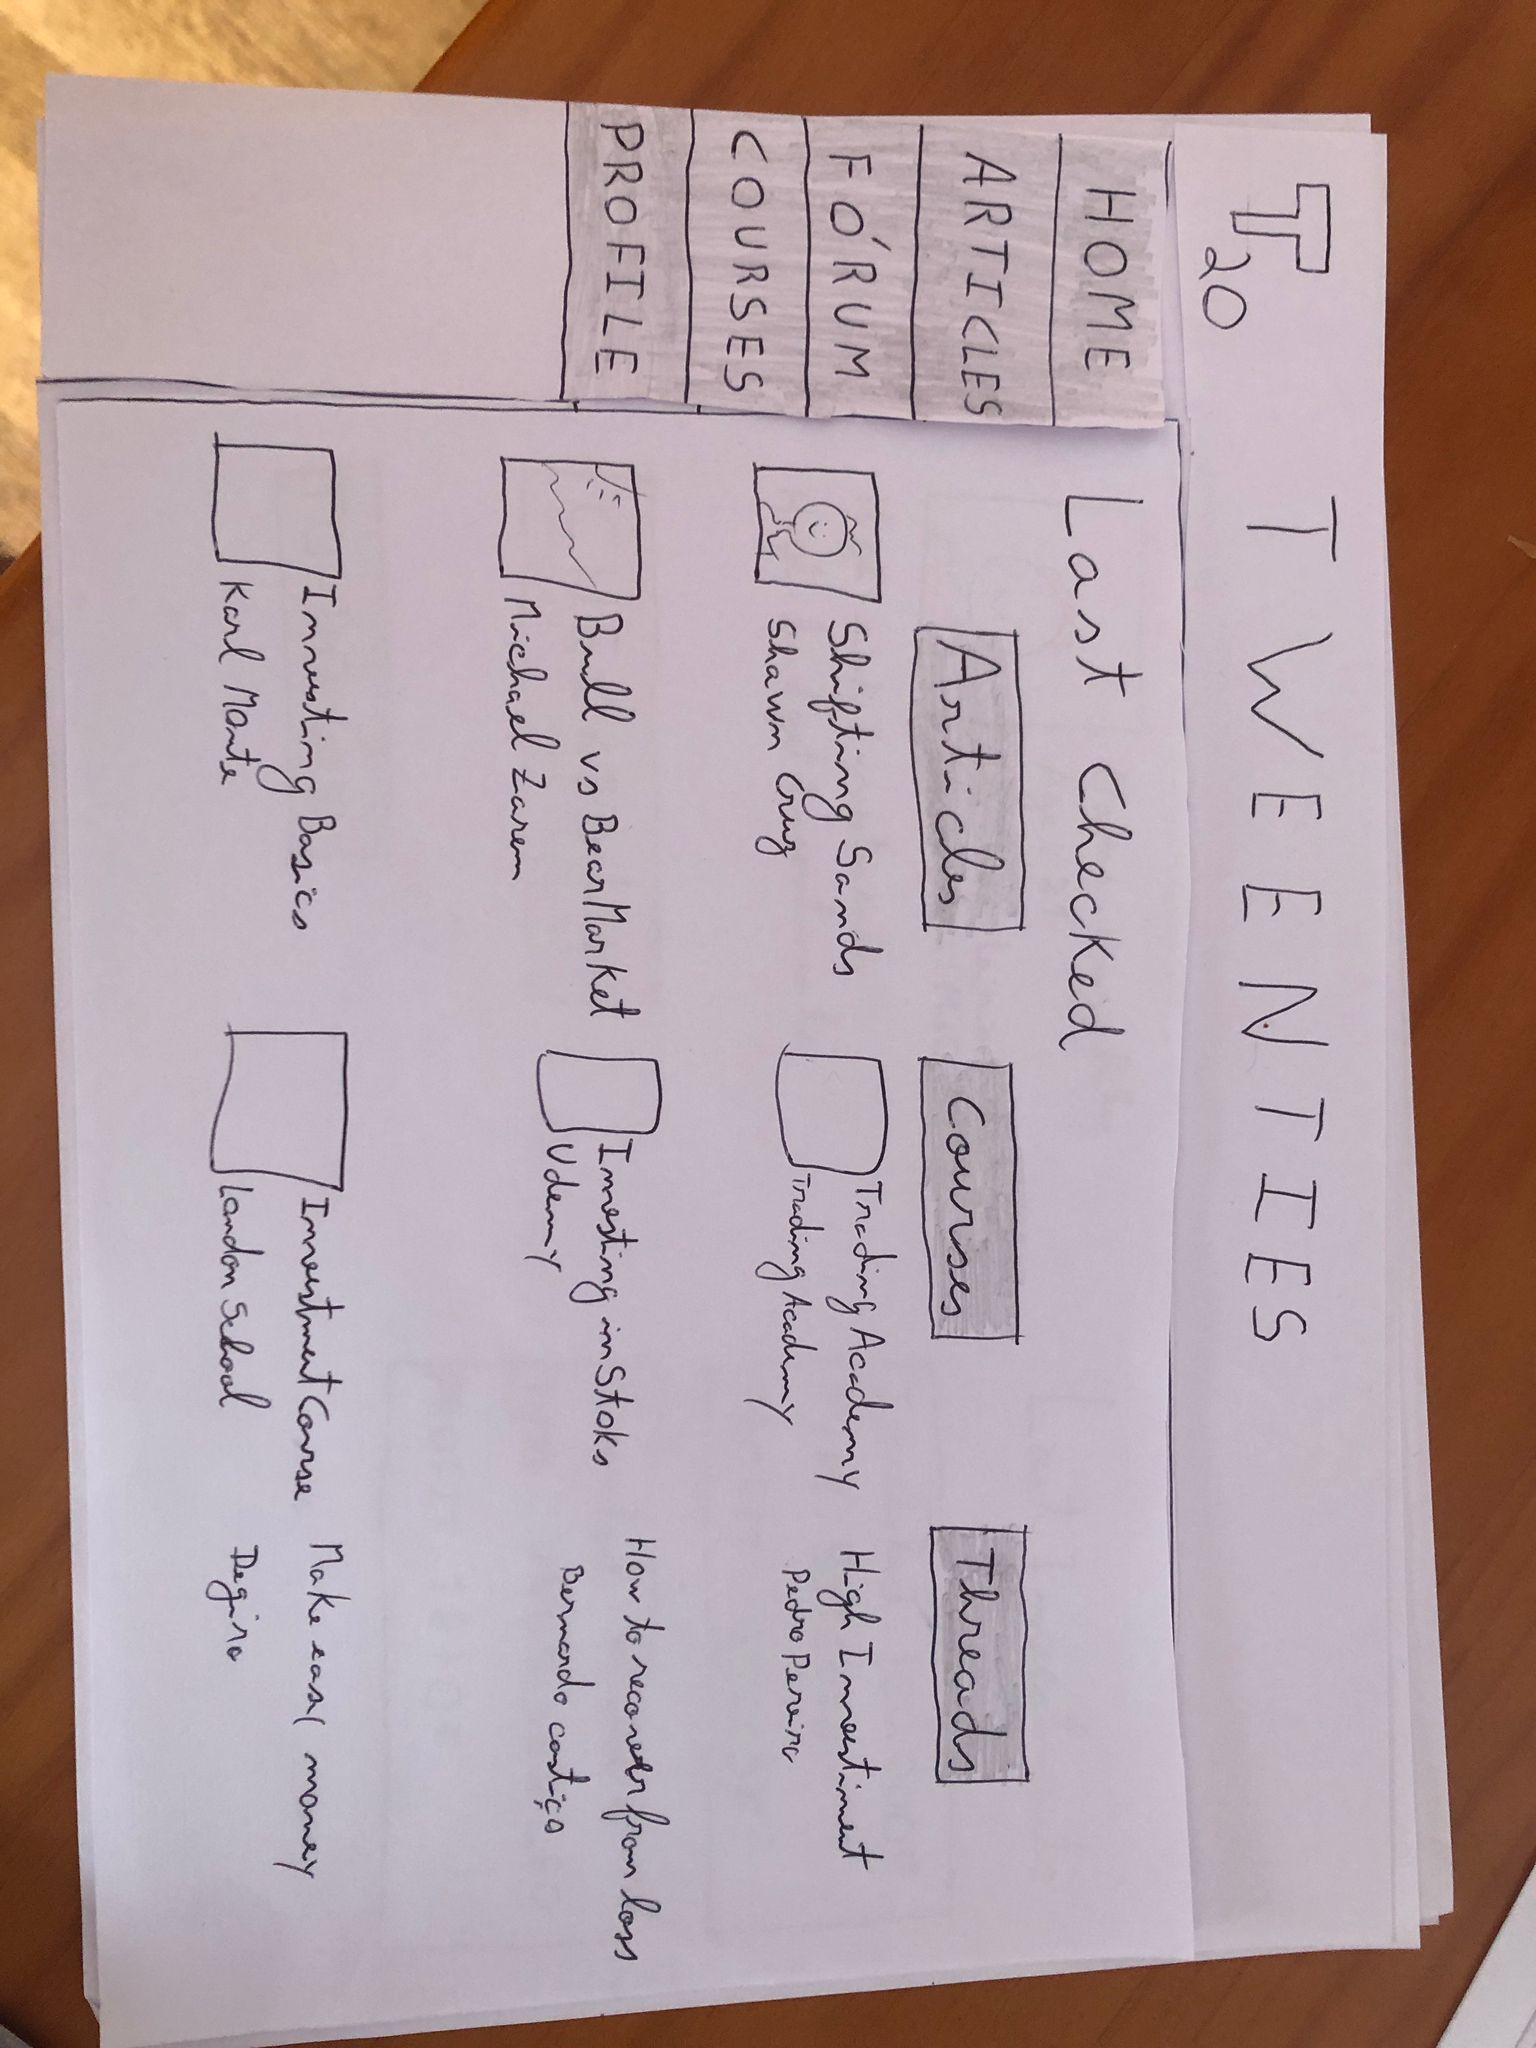 T
20
TWEENTIES
HOME
ARTICLES
FÓRUM
COURSES
PROFILE
Last Checked
Articles
Shifting Sands
Shawn Cruz
Bull vs Bear Market
Michael Zarem
Investing Basics
Karl Monte
Courses
Trading Academy
Trading Academy
Investing in Stoks
Udemy
Investment Course
London School
Threads
High Investiment
Pedro Pereira
How to recover from loss
Bernardo castiço
Make easy money
Degiro